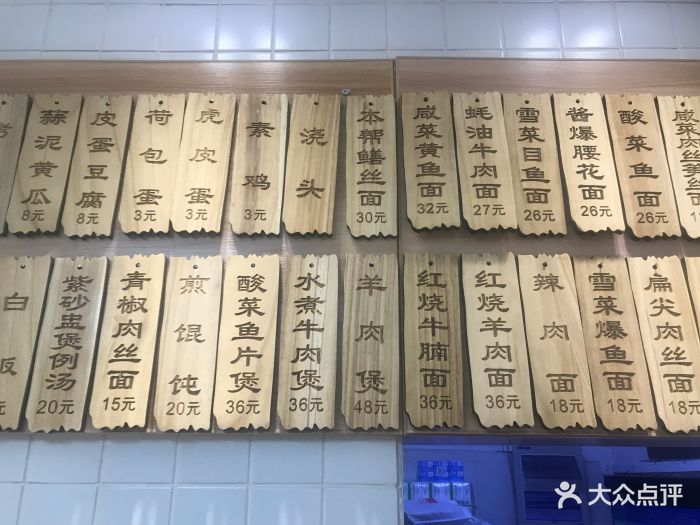 蒜泥黄瓜 8元
皮蛋豆腐 8元
荷包蛋 3元
虎皮蛋 3元
素鸡 3元
浇头
本帮鳝丝面 30元
咸菜黄鱼面 32元
蚝油牛肉面 27元
雪菜目鱼面 26元
酱爆腰花面 26元
酸菜鱼面 26元
咸菜肉丝笋丝面
白饭
紫砂盅煲例汤 20元
青椒肉丝面 15元
煎馄饨 20元
酸菜鱼片煲 36元
水煮牛肉煲 36元
羊肉煲 48元
红烧牛腩面 36元
红烧羊肉面 36元
辣肉面 18元
雪菜爆鱼面 18元
扁尖肉丝面 18元
大众点评